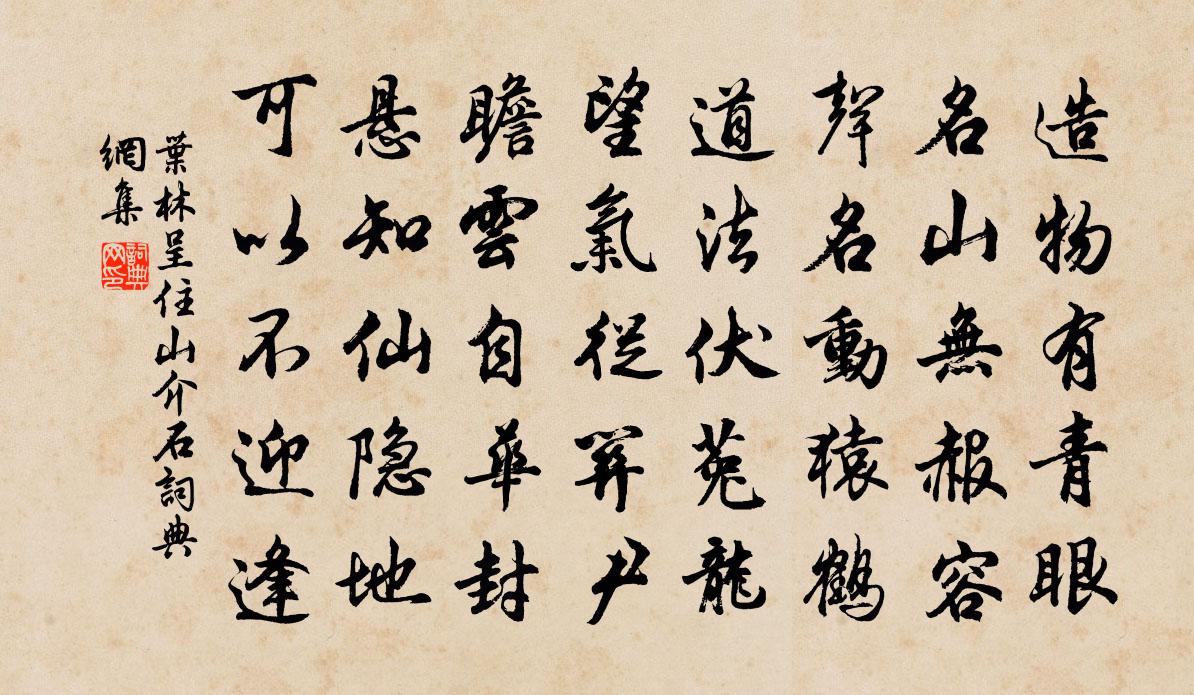 造物有青眼
名山無赧容
聲名動猿鶴
道法伏菟龍
望氣從關尹
瞻雲自華封
悬知仙隐地
可以不迎逢
葉林呈住山介石詞典
網集
詞典网印